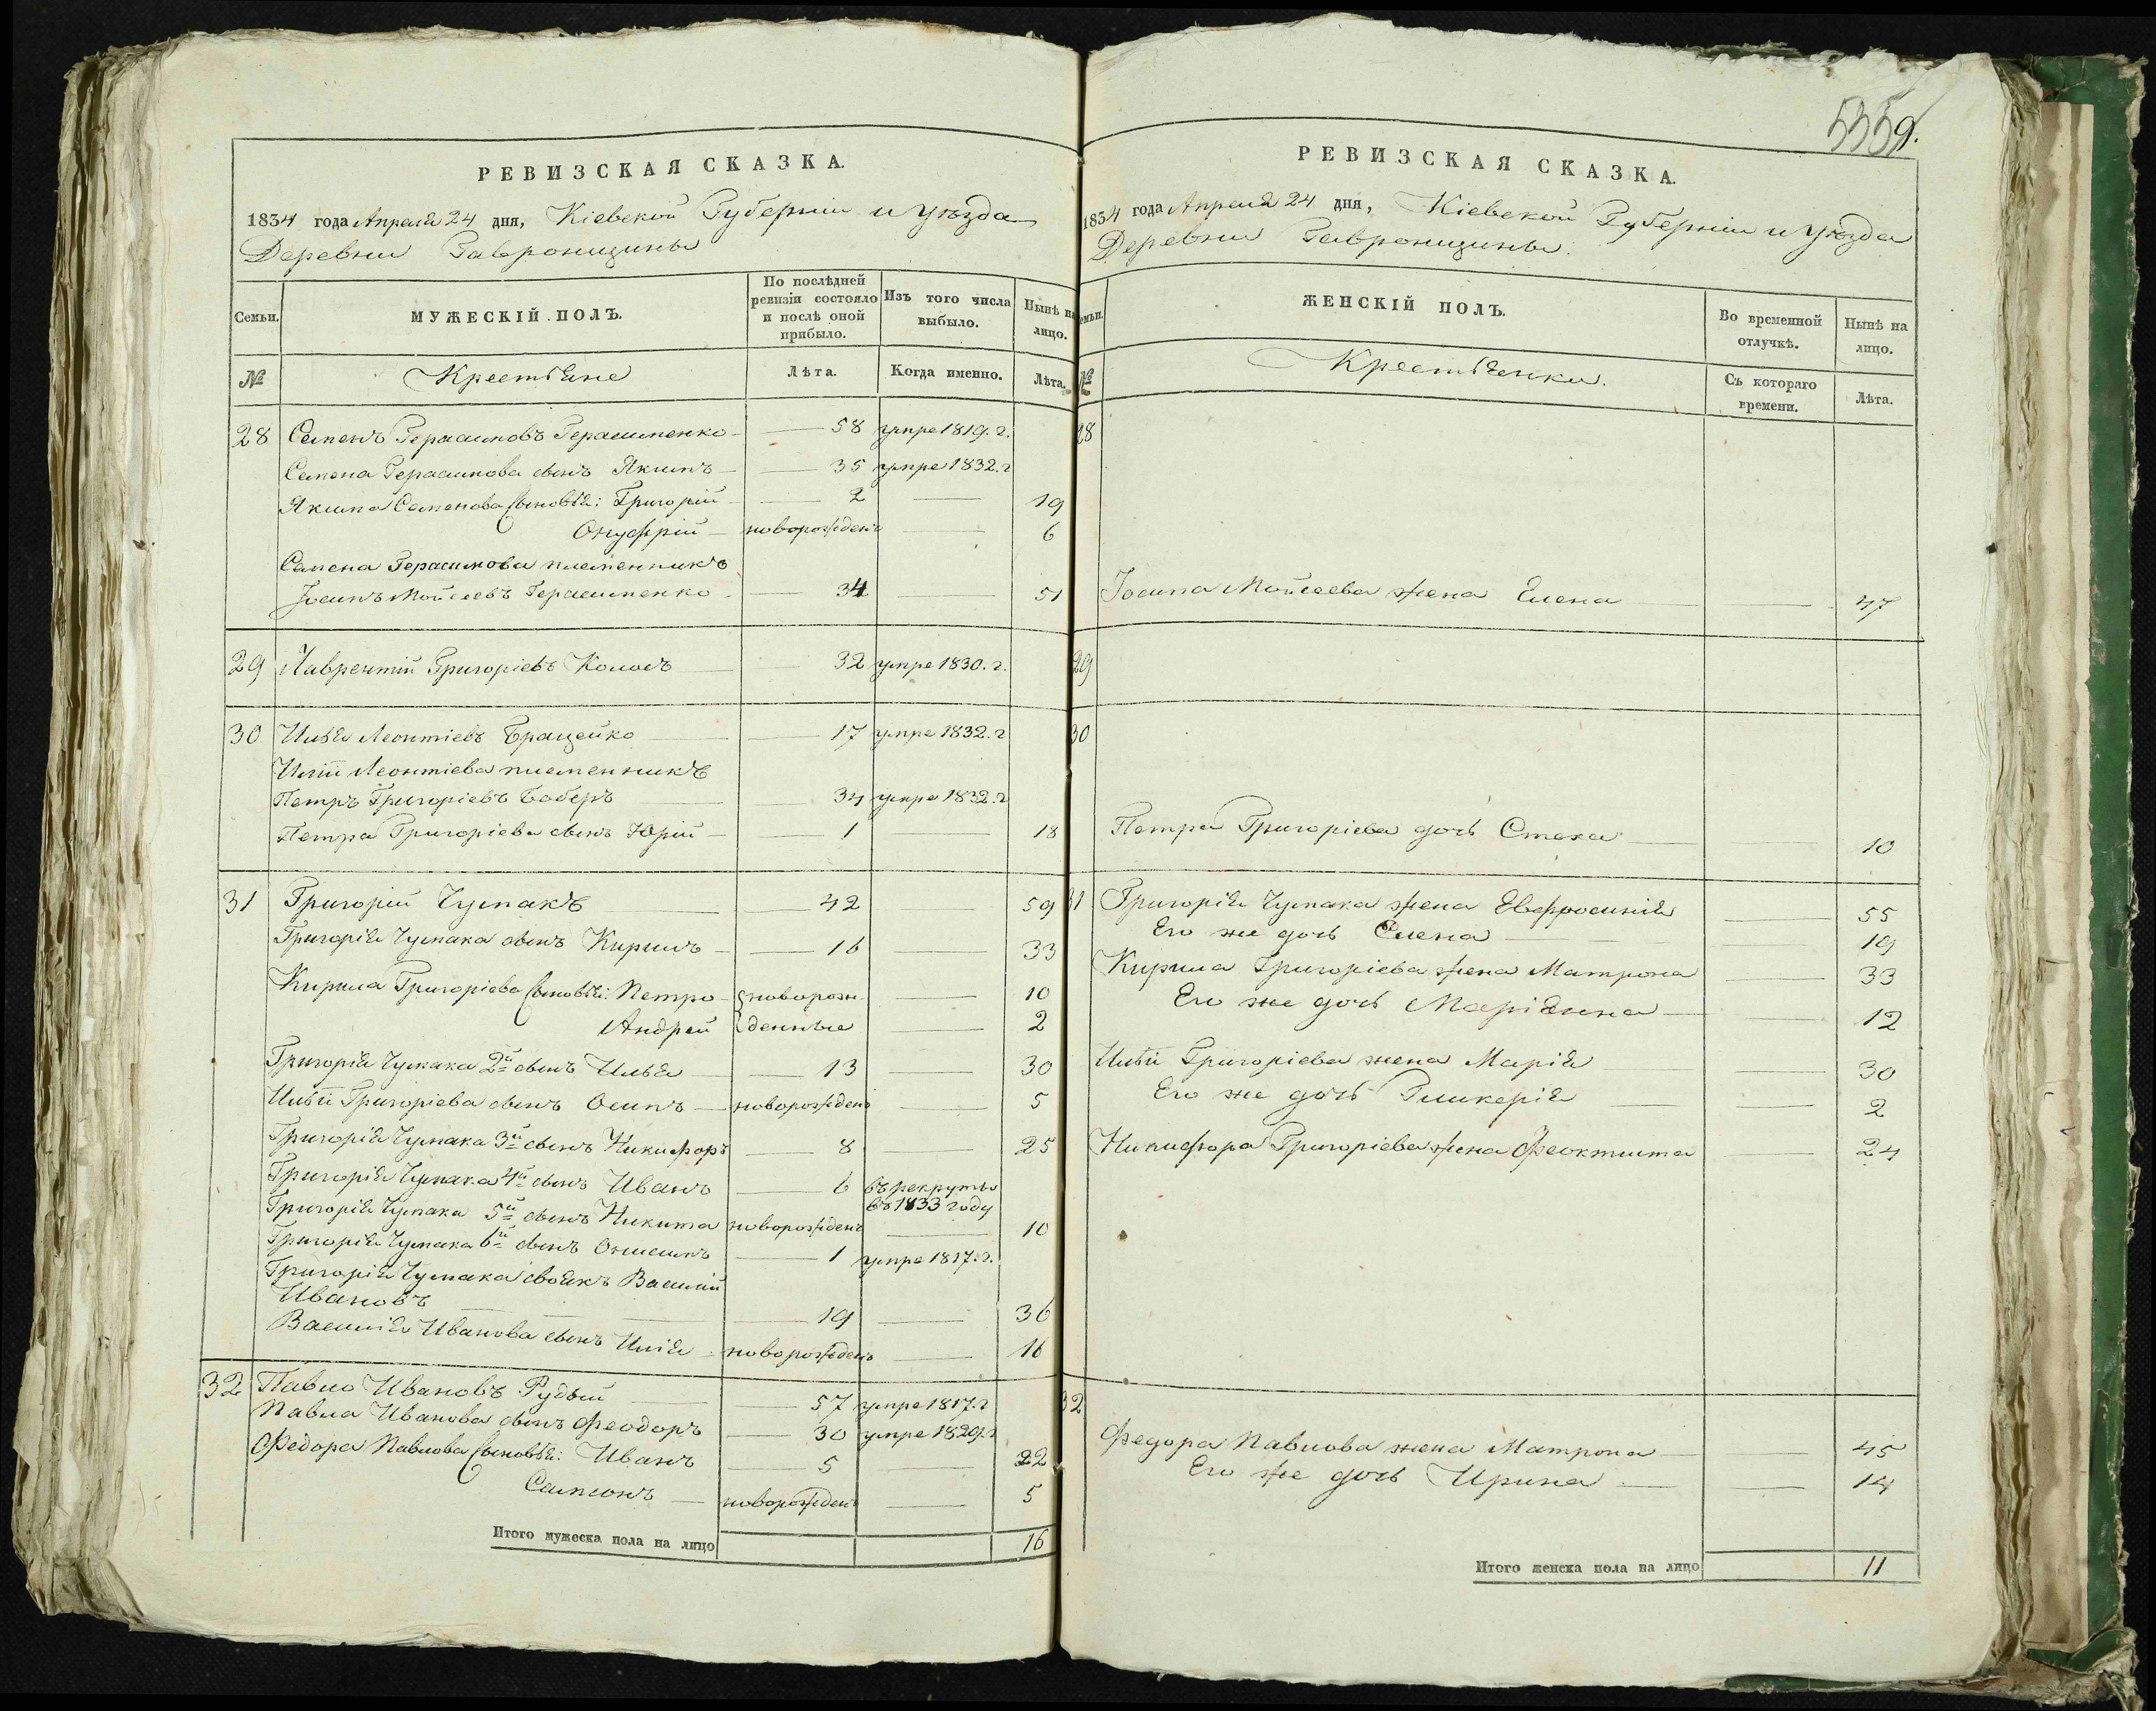 РЕВИЗСКАЯ СКАЗКА.
1834 года Апреля 24 дня, Кіевской Губерніи и уѣзда
Деревни Гавронщины
Семьи.
МУЖЕСКІЙ ПОЛЪ.
По послѣдней ревизіи состояло и послѣ оной прибыло.
Изъ того числа выбыло.
Нынѣ на лицо.
№ Крестьяне Лѣта. Когда именно. Лѣта.
28 Семенъ Герасимовъ Герасименко 58 умре 1819. г.
Семена Герасимова сынъ Якимъ 35 умре 1832. г
Якима Семенова сыновья: Григорій 2 19
Онуфрій новорожденъ 6
Семена Герасимова племенникъ
Іосипъ Мойсеевъ Герасименко 34 51
29 Лаврентій Григоріевъ Колосъ 32 умре 1830. г.
30 Илья Леонтіевъ Брацейко 17 умре 1832. г
Иліи Леонтіева племенникъ
Петръ Григоріевъ Боберъ 34 умре 1832. г
Петра Григоріева сынъ Юрій 1 18
31 Григорій Чумакъ 42 59
Григорія Чумака сынъ Кирилъ 16 33
Кирила Григоріева сыновья: Петро новорож- 10
Андрей денные 2
Григорія Чумака 2й сынъ Илья 13 30
Ильи Григоріева сынъ Осипъ новорожденъ 5
Григорія Чумака 3й сынъ Никифоръ 8 25
Григорія Чумака 4й сынъ Иванъ 6 въ рекруты
въ 1833 году
Григорія Чумака 5й сынъ Никита новорожденъ 10
Григорія Чумака 6й сынъ Онисимъ 1 умре 1817. г.
Григорія Чумака своякъ Василій
Ивановъ 19 36
Василія Иванова сынъ Илія новорожденъ 16
32 Павло Ивановъ Рудый 57 умре 1817. г
Павла Иванова сынъ Феодоръ 30 умре 1829. г
Федора Павлова сыновья: Иванъ 5 22
Самсонъ новорожденъ 5
Итого мужеска пола на лицо 16
9.
РЕВИЗСКАЯ СКАЗКА.
1834 года Апреля 24 дня, Кіевской Губерніи и уѣзда
Деревни Гавронщины.
Семьи.
ЖЕНСКІЙ ПОЛЪ.
Во временной отлучкѣ.
Нынѣ на лицо.
№ Крестьянки. Съ котораго времени. Лѣта.
28
Іосипа Мойсеева жена Елена 47
29
30
Петра Григоріева дочь Стеха 10
31 Григорія Чумака жена Евфросинія 55
Его же дочь Елена 19
Кирила Григоріева жена Матрона 33
Его же дочь Маріянна 12
Ильи Григоріева жена Марія 30
Его же дочь Гликерія 2
Никифора Григоріева жена Феоктиста 24
32
Федора Павлова жена Матрона 45
Его же дочь Ирина 14
Итого женска пола на лицо 11